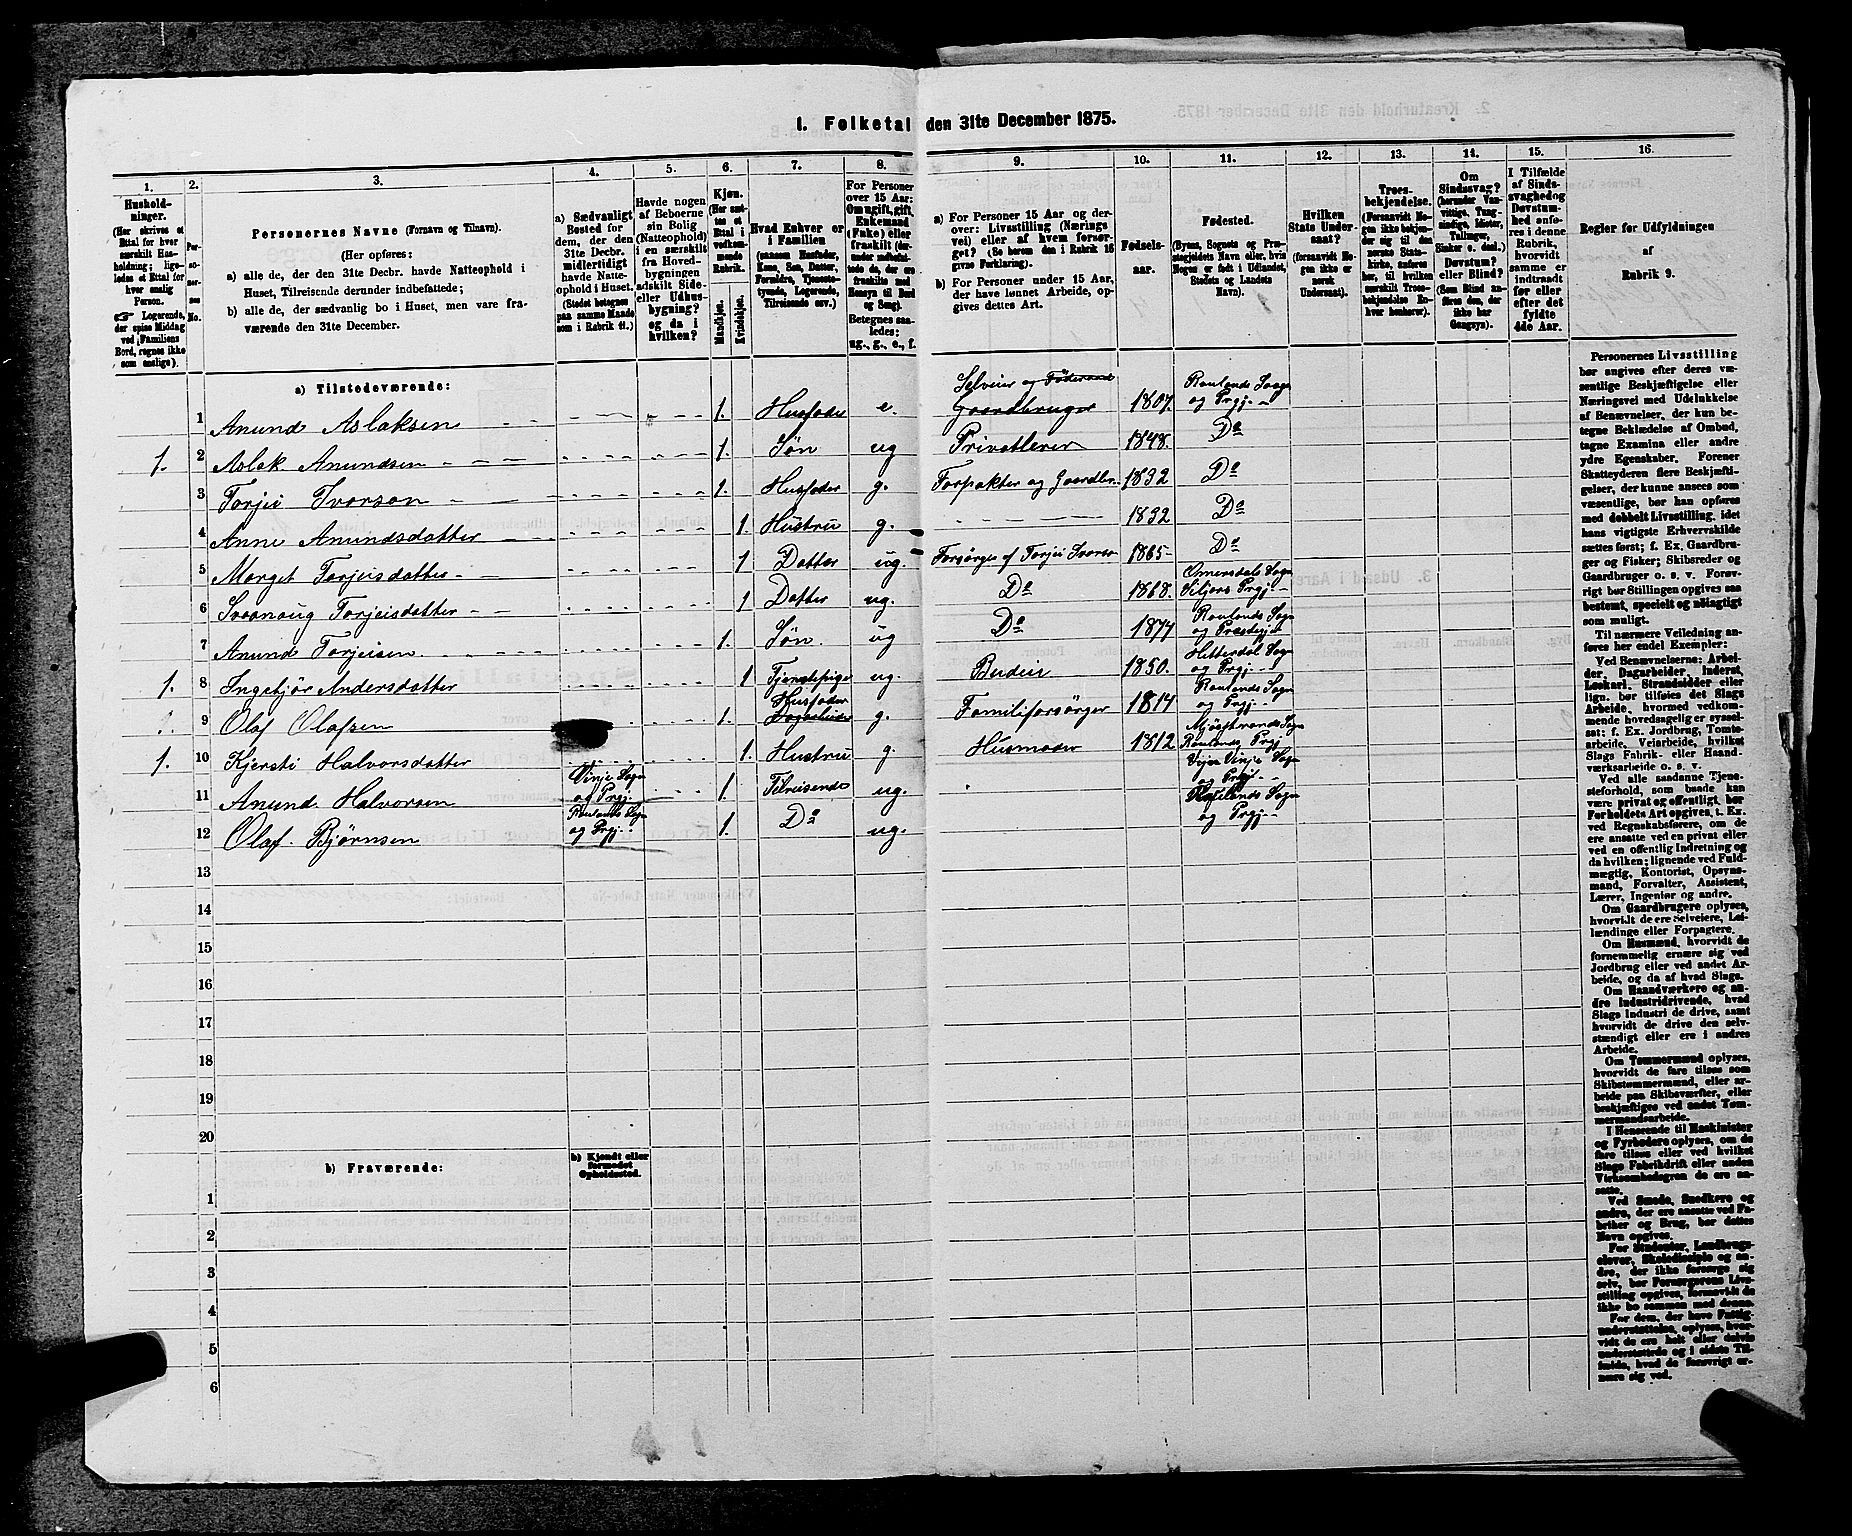 1. Folketal den 31te December 1875.
1. 2. 3. 4. 5. 6. 7. 8. 9. 10. 11. 12. 13. 14. 15. 16.
Hushold-
ninger.
(Her skrives et
Ettal for hver
særskilt Hus-
holdning; lige-
ledes et Ettal for
hver enslig
Person.
☞ Logerende,
der spise Middag
ved Familiens
Bord, regnes ikke
som enslige).
Per-
so-
ner-
nes
No.
Personernes Navne (Fornavn og Tilnavn).
(Her opføres:
a) alle de, der den 31te Decbr. havde Natteophold i
Huset, Tilreisende derunder indbefattede;
b) alle de, der sædvanlig bo i Huset, men vare fra-
værende den 31te December.
a) Sædvanligt
Bosted for
dem, der den
31te Decbr.
midlertidigt
havde Natte-
ophold i Huset.
(Stedet betegnes
paa samme Maade
som i Rubrik 11.)
Havde nogen
af Beboerne
sin Bolig
(Natteophold)
i en særskilt
fra Hoved-
bygningen
adskilt Side-
eller Udhus-
bygning?
og da i
hvilken?
Kjøn.
(Her sæt-
tes et
Ettal i
vedkom-
mende
Rubrik.
Mandkjøn.
Kvindekjøn.
Hvad Enhver er
i Familien
(saasom Husfader,
Kone, Søn, Datter,
Forældre, Tjeneste-
tyende, Logerende,
Tilreisende osv.)
For Personer
over 15 Aar:
Om ugift, gift,
Enkemand
(Enke) eller
fraskilt
Betegnes saa-
ledes:
ug., g., e., f.
a) For Personer 15 Aar og der-
over: Livsstilling (Nærings
vei) eller af hvem forsør-
get? (Se herom den i Rubrik 16
givne Forklaring).
b) For Personer under 15 Aar,
der have lønnet Arbeide, op-
gives dettes Art.
Fødsels-
aar.
Fødested.
(Byens, Sognets og Præ-
stegjeldets Navn eller, hvis
Nogen er født i Udlandet,
Stedets og Landets
Navn).
Hvilken
Stats Under-
saat?
(forsaavidt No-
gen ikke er
norsk
Undersaat).
Troes-
bekjendelse.
(Forsaavidt No-
gen ikke bekjen-
der sig til den
norske Stats-
kirke, anføres
her, til hvilken
Troesbekjendelse En-
hver henhører).
Om
Sindssvag?
(herunder Van-
vittige, Tung-
sindige, Idioter,
Tullinger,
Sinker o. desl.)
Døvstum?
eller Blind?
(Som Blind an-
føres den, der
ikke har
Gangsyn).
I Tilfælde
af Sinds-
svaghed og
Døvstum-
hed anfø-
res i denne
Rubrik,
hvorvidt
samme er
indtraadt
før eller
efter det
fyldte
4de Aar.
Regler for Udfyldningen
af
Rubrik 9.
a) Tilstedeværende:
1 Anund Aslaksen 1. Husfader e. Selveier og Føderaad Gaardbruger 1807. Raulands Sogn og Prgj.
1. 2 Aslak Anundsen 1. Søn ug Privatlærer 1848. Do
3 Torjei Ivorson 1. Husfader g. Forpakter og Gaardbr. 1832 Do
4 Anne Anundsdatter 1. Hustru g. 1832 Do
5 Morget Torjeisdatter 1 Datter ug. Forsørges af Torjei Ivorson 1865 Do
6 Svanaug Torjeisdatter 1 Datter ug. Do 1868. Omersdals Sogn Siljors Prgj.
7 Anund Torjeisen 1. Søn. ug Do 1874 Raulands Sogn og Præstegj.
1. 8 Ingebjør Andersdatter 1 Tjenstepige ug. Budeie 1850. Hitterdal Sogn og Prgj.
1. 9 Olaf Olafsen 1. Husfader g. Familiforsørger 1814 Raulands Sogn og Prgj.
1. 10 Kjersti Halvorsdatter 1. Hustru g. Husmoder 1812 Mjøsstrands Sogn Raulands Prgj
11 Anund Halvorsen Vinje Sogn og Prgj. 1. Tilreisende ug. Vinje Sogn og Prgj.
12 Olaf Bjørnsen Raulands Sogn og Prgj. 1. Do ug. Raulands Sogn og Prgj.
13
14
15
16
17
18
19
20
b) Fraværende:
b) Kjendt eller
formodet
Opholdssted.
1
2
3
4
5
6
Personernes Livsstilling
bør angives efter deres væ-
sentlige Beskjæftigelse eller
Næringsvei med Udelukkelse
af Benævnelser, der kun be-
tegne Beklædelse af Ombud,
tagne Examina eller andre
ydre Egenskaber. Forener
Skatteyderen flere Beskjæfti-
gelser, der kunne ansees som
væsentlige, bør han opføres
med dobbelt Livsstilling, idet
hans vigtigste Erhvervskilde
sættes først; f. Ex. Gaardbru-
ger og Fisker; Skibsreder og
Gaardbruger o. s. v. Forøv-
rigt bør Stillingen opgives saa
bestemt, specielt og nøiagtigt
som muligt.
Til nærmere Veiledning an-
føres her endel Exempler:
Ved Benævnelserne: Arbei-
der, Dagarbeider, Inderst,
Løskarl, Strandsidder eller
lign. bør tilføies det Slags
Arbeide, hvormed vedkom-
mende hovedsagelig er syssel-
sat; f. Ex. Jordbrug, Tomte-
arbeide, Veiarbeide, hvilket
Slags Fabrik- eller Haand-
værksarbeide o. s. v.
Ved alle saadanne Tjene-
steforhold, som baade kan
være privat og offentligt, bør
Forholdets Art opgives, t. Ex.
ved Regnskabsførere, om de
ere ansatte ved en privat eller
ved en offentlig Indretning og
da hvilken; lignende ved Fuld-
mægtig, Kontorist, Opsyns-
mand, Forvalter, Assistent,
Lærer, Ingeniør og andre.
Om Gaardbrugere oplyses,
hvorvidt de ere Selveiere, Lei-
lændinge eller Forpagtere.
Om Husmænd, hvorvidt de
fornemmelig ernære sig ved
Jordbrug eller ved andet Ar-
beide, og da af hvad Slags.
Om Haandværkere og an-
dre Industridrivende, hvad
Slags Industri de drive, samt
hvorvidt de drive den selv-
stændigt eller ere i andres
Arbeide.
Om Tømmermænd oplyses,
hvorvidt de fare tilsøs som
Skibstømmermænd, eller ar-
beide paa Skibsværfter, eller
beskjæftiges ved andet Tøm-
mermandsarbeide.
I Henseende til Maskinister
og Fyrbødere oplyses, om de
fare tilsøs eller ved hvilket
Slags Fabrikdrift eller anden
Virksomhed de ere an-
satte.
Ved Smede, Snedkere og
andre, der ere ansatte ved Fa-
briker og Brug, bør dettes
Navn opgives.
For Studenter, Landbrugs-
elever, Skoledisciple og an-
dre, der ikke forsørge sig
selv, bør Forsørgerens Livs-
stilling opgives, forsaavidt de
ikke bo sammen med denne.
For dem, der have Fattig-
understøttelse, oplyses, hvor-
vidt de ere helt eller delvis
understøttede og i sidste Til-
fælde, hvad de forøvrigt er-
nære sig ved.